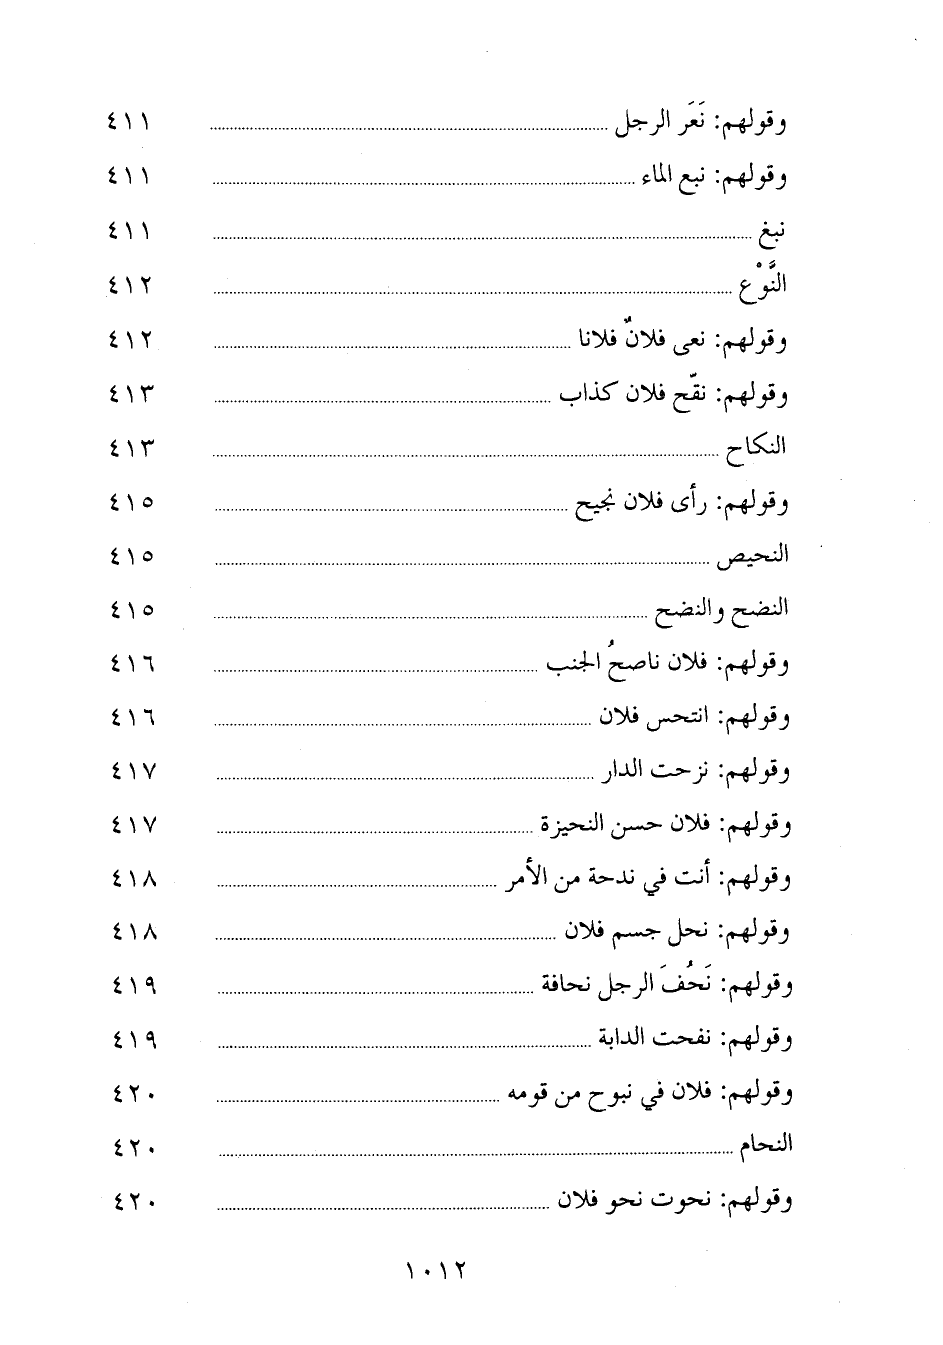 وقولهم: نَعَر الرجل ٤١١
وقولهم: نبع الماء ٤١١
نبغ ٤١١
النَّوْع ٤١٢
وقولهم: نعى فلانٌ فلانا ٤١٢
وقولهم: نقّح فلان كذاب ٤١٣
النكاح ٤١٣
وقولهم: رأى فلان نجيح ٤١٥
النحيص ٤١٥
النضح والنضح ٤١٥
وقولهم: فلان ناصحُ الجنب ٤١٦
وقولهم: انتحس فلان ٤١٦
وقولهم: نزحت الدار ٤١٧
وقولهم: فلان حسن النحيزة ٤١٧
وقولهم: أنت في ندحة من الأمر ٤١٨
وقولهم: نحل جسم فلان ٤١٨
وقولهم: نَحُفَ الرجل نحافة ٤١٩
وقولهم: نفحت الدابة ٤١٩
وقولهم: فلان في نبوح من قومه ٤٢٠
النحام ٤٢٠
وقولهم: نحوت نحو فلان ٤٢٠
١٠١٢